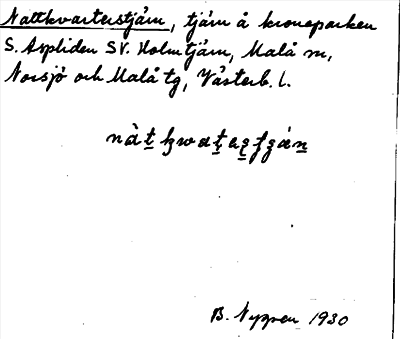 Nattkvarterstjärn, tjärn å kronoparken
S. Aspliden SV. Holmtjärn, Malå sn,
Norsjö och Malå tg, Västerb. l.
B. Nygren 1930